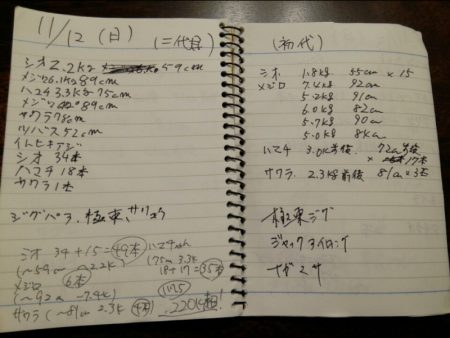 11/12(日) (二代目)
シオ 2.2kg 59cm
メジロ 6.1kg 89cm
ハマチ 3.3kg 75cm
メジロ 89cm
サワラ 78cm
ツバス 52cm
シオ 34本
ハマチ 18本
サワラ 1本
ジグパラ、極東、
シオ 34+15=49本
(~59cm ~2.2k)
メジロ 6本
(~92cm ~7.4k)
サワラ (~81cm 2.3k 4本)
ハマチ
(75cm 3.3k
18+17=35本
220k超!
(初代)
シオ 1.8kg 55cm × 15
メジロ 7.4kg 92cm
5.2kg 91cm
6.0kg 82cm
5.7kg 90cm
5.0kg
ハマチ 3.0kg前後 72cm前後
× 17本
サワラ 2.3kg前後 81cm × 3本
極東ジグ
ジャックアイロング